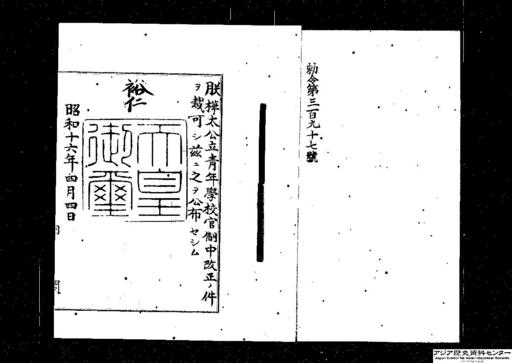 勅令第三百九十七號
朕樺太公立青年學校官制中改正ノ件
ヲ裁可シ茲ニ之ヲ公布セシム
裕仁
天皇
御璽
昭和十六年四月四日
内閣
アジア歴史資料センター
Japan Center for Asian Historical Records